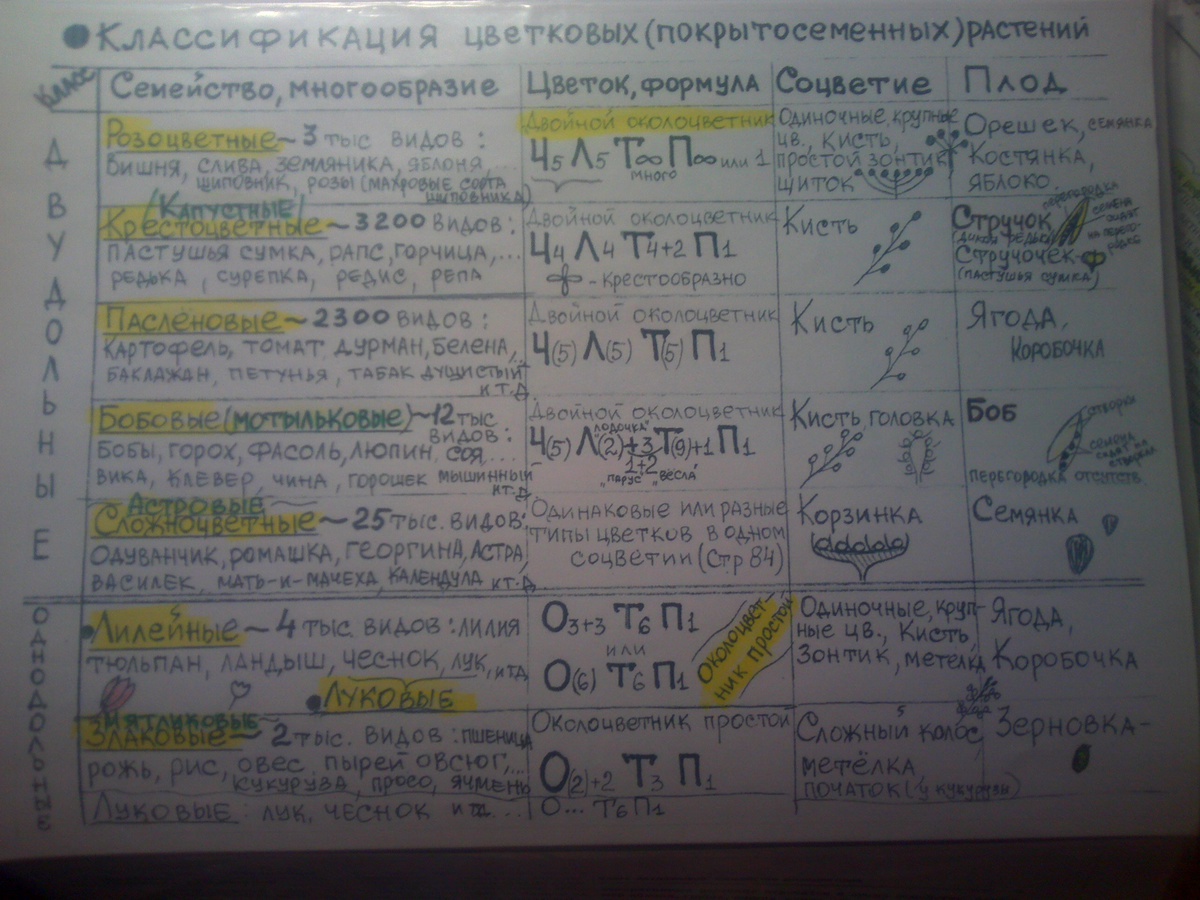 Классификация цветковых (покрытосеменных) растений
Класс
Семейство, многообразие
Цветок, формула
Соцветие
Плод
Двудольные
Розоцветные ~ 3 тыс. видов:
вишня, слива, земляника, яблоня, ...
шиповник, розы (махровые сорта
шиповника)
Двойной околоцветник
Ч5 Л5 Т∞ П∞ или 1
много
Одиночные, крупные
цв., кисть,
простой зонтик
щиток
Орешек, семянка
Костянка,
яблоко.
(Капустные)
Крестоцветные ~ 3200 видов:
пастушья сумка, рапс, горчица, ...
редька, сурепка, редис, репа
Двойной околоцветник
Ч4 Л4 Т4+2 П1
- крестообразно
Кисть
Стручок
(дикая редька)
Стручочек-
(пастушья сумка)
перегородка
семена
сидят
на перего-
родке
Паслёновые ~ 2300 видов:
картофель, томат, дурман, белена, ..
баклажан, петунья, табак душистый
и т.д.
Двойной околоцветник
Ч(5) Л(5) Т(5) П1
Кисть
Ягода,
коробочка
Бобовые (мотыльковые) ~ 12 тыс
видов:
Бобы, горох, фасоль, люпин, соя....
вика, клевер, чина, горошек мышинный
и т.д
Двойной околоцветник
"лодочка"
Ч(5) Л(2)+3 Т(9)+1 П1
1+2
"парус" "весла"
Кисть, головка
Боб
створки
семена
сидят на
створках
перегородка отсутств.
Астровые
Сложноцветные ~ 25 тыс. видов:
Одуванчик, ромашка, георгина, астра,
василек, мать-и-мачеха, календула и т.д
Одинаковые или разные
типы цветков в одном
соцветии (стр 84)
Корзинка
Семянка
Однодольные
Лилейные ~ 4 тыс. видов: лилия
тюльпан, ландыш, чеснок, лук, и т.д,
Луковые
О3+3 Т6 П1
или
О(6) Т6 П1
Околоцвет-
ник простой
Одиночные, круп-
ные цв., кисть,
зонтик, метелка
Ягода,
Коробочка
Мятликовые
Злаковые ~ 2 тыс. видов: пшеница
рожь, рис, овес, пырей овсюг, ...
кукуруза, просо, ячмень
Околоцветник простой
О(2)+2 Т3 П1
Сложный колос,
метёлка
початок (у кукурузы)
Зерновка-
Луковые: лук, чеснок и т.д...
О... Т6 П1